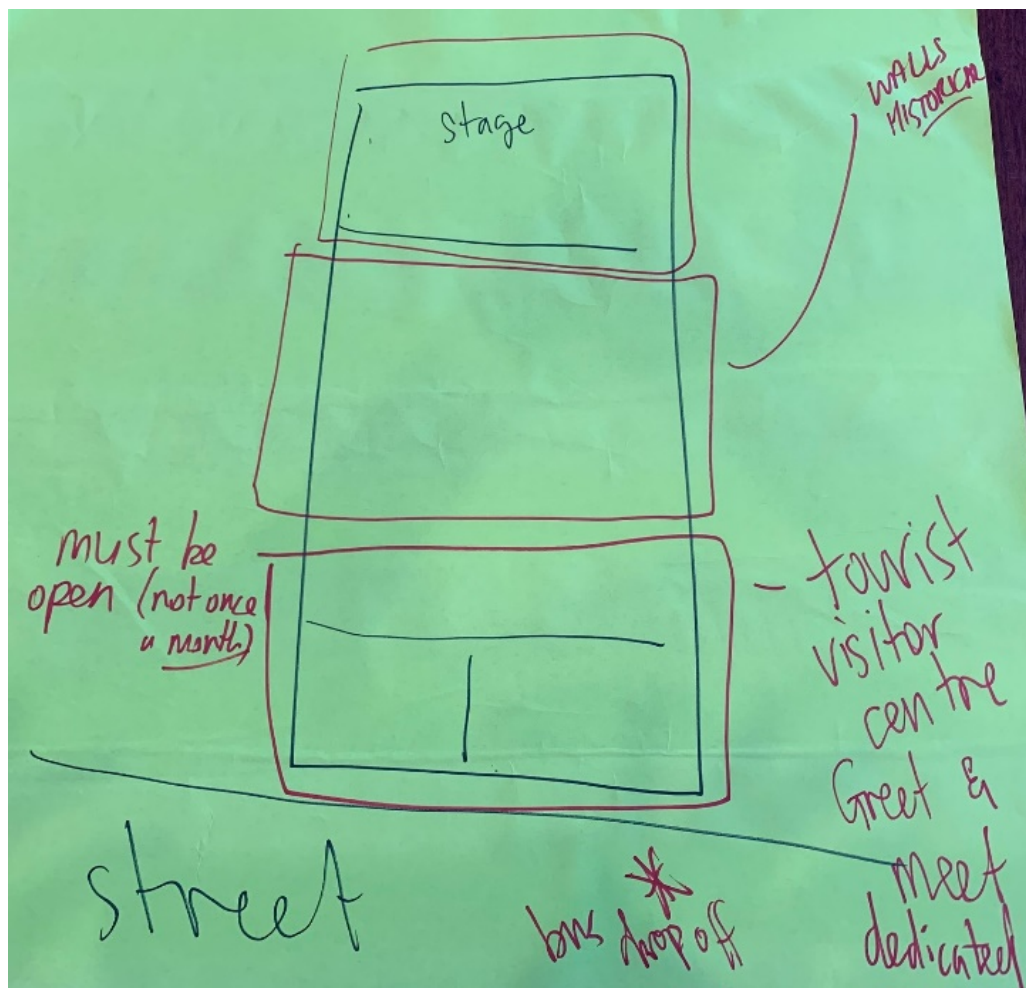 stage
WALLS
HISTORICAL
must be
open (not once
a month)
- tourist
visitor
centre
Greet &
meet
dedicated
street
bus drop off